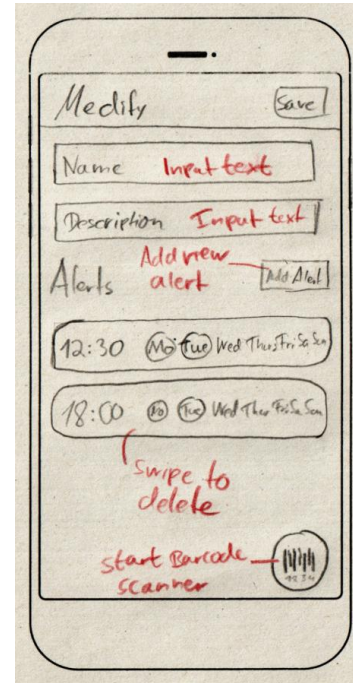 Medify Save
Name Input text
Description Input text
Add new
Alerts alert Add Alert
12:30 Mo Tue Wed Thur Fri Sa Son
18:00 Mo Tue Wed Thur Fri Sa Son
Swipe to
delete
start Barcode
scanner